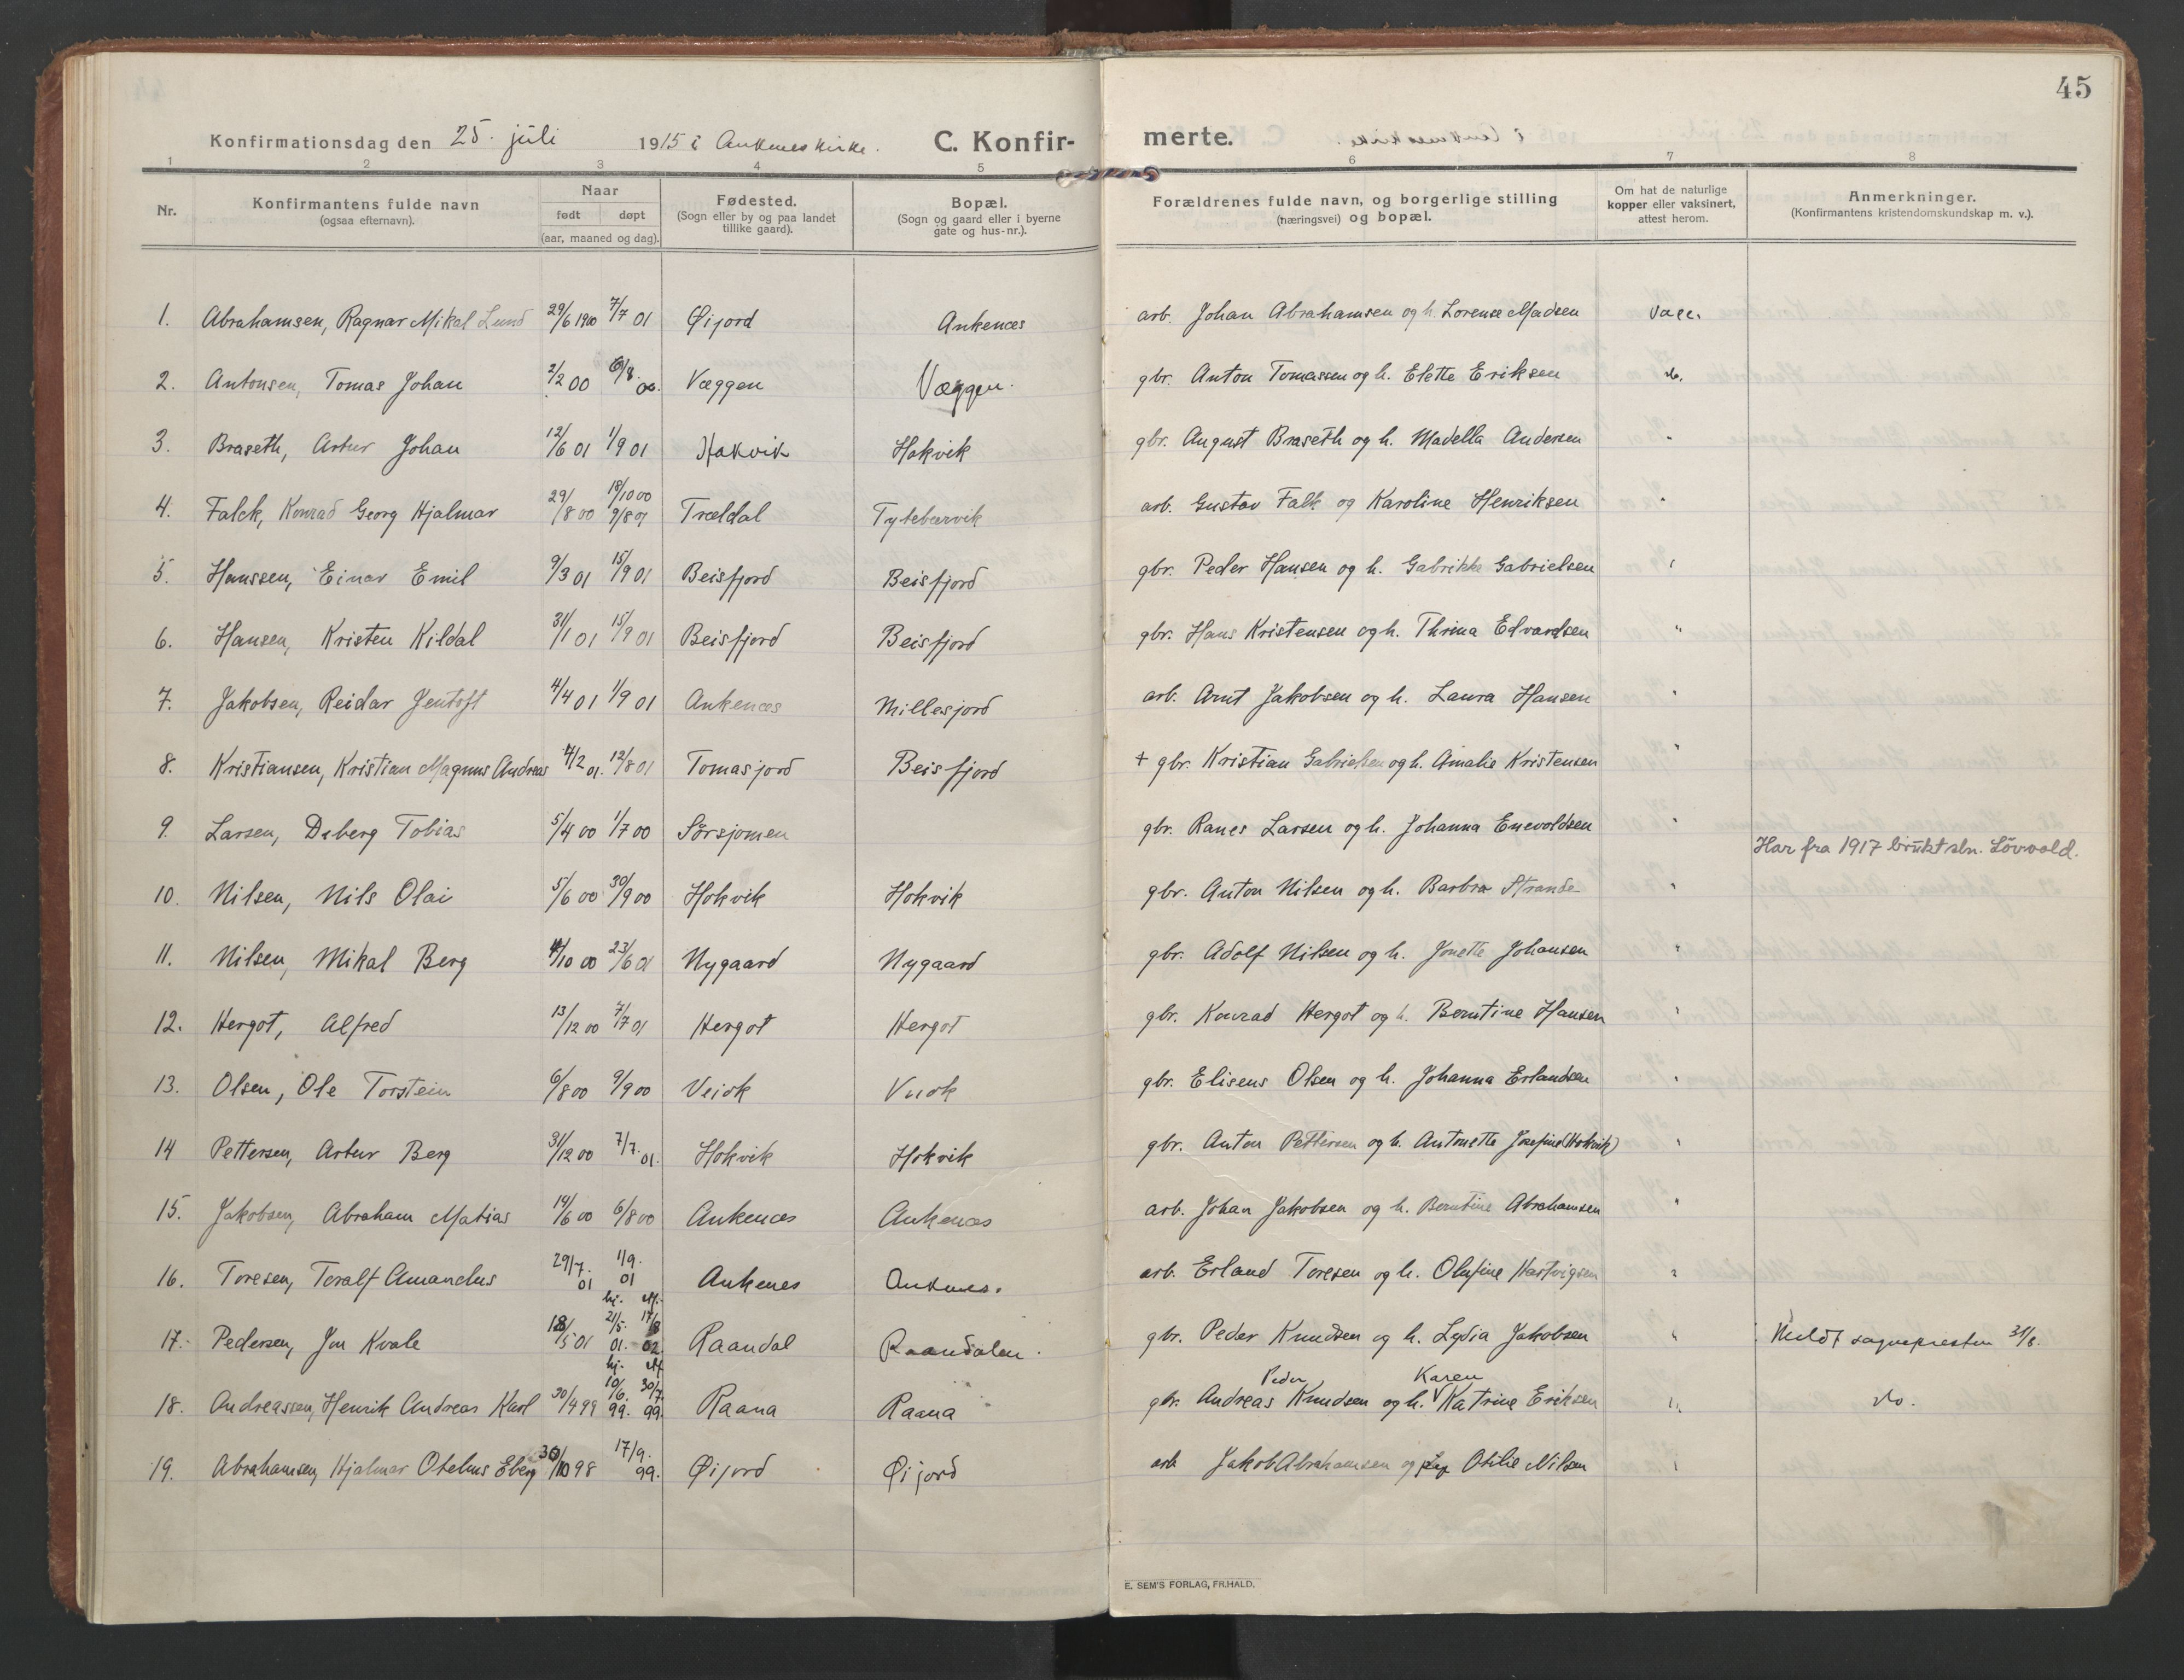 45
Konfirmationsdag den 25. juli 1915 i Ankenes kirke. C. Konfir- merte.
1 2 3 4 5 6 7 8
Nr. Konfirmantens fulde navn (ogsaa efternavn). Naar født døpt (aar, maaned og dag). Fødested. (Sogn eller by og paa landet tillike gaard). Bopæl. (Sogn og gaard eller i byerne gate og hus-nr.). Forældrenes fulde navn, og borgerlige stilling (næringsvei) og bopæl. Om hat de naturlige kopper eller vaksinert, attest herom. Anmerkninger. (Konfirmantens kristendomskundskap m. v.).
1. Abrahamsen, Ragnar Mikal Lund 29/6 1900 7/7 01 Øijord Ankenes arb. Johan Abrahamsen og h. Lorense Madsen Vacc.
2. Antonsen, Tomas Johan 2/2 00 6/8. 00. Væggen Væggen. gbr. Anton Tomassen og h. Elette Eriksen do.
3. Braseth, Artur Johan 12/6 01 1/9 01 Hakvik Hakvik gbr. August Braseth og h. Madella Andersen "
4. Falck, Konrad Georg Hjalmar 29/8 00 18/10 00 9/8 01 Træeldal Tytebærvik arb. Gustav Falk og Karoline Henriksen "
5. Hanssen, Einar Emil 9/3 01 15/9 01 Beisfjord Beisfjord gbr. Peder Hansen og h. Gabrikke Gabrielsen "
6. Hansen, Kristen Kildal 31/1 01 15/9 01 Beisfjord Beisfjord gbr. Hans Kristensen og h. Thrina Edvardsen "
7. Jakobsen, Reidar Jentoft 4/4 01 1/9 01 Ankenes Millesjord arb. Arnt Jakobsen og h. Laura Hansen "
8. Kristiansen, Kristian Magnus Andreas 4/2 01. 12/8 01 Tomasjord Beisfjord + gbr. Kristian Gabrielsen og h. Amalie Kristensen "
9. Larsen, Deberg Tobias 5/4 00 1/7 00 Sørsjomen gbr. Ranes Larsen og h. Johanna Enevoldsen " Har fra 1917 brukt sln. Lövvold.
10. Nilsen, Nils Olai 5/6 00 30/9 00 Hokvik Hokvik gbr. Anton Nilsen og h. Barbra Strande "
11. Nilsen, Mikal Berg 4/10 00 23/6 01 Nygaard Nygaard gbr. Adolf Nilsen og h. Jonette Johansen "
12. Hergot, Alfred 13/12 00 7/7 01 Hergot Hergot gbr. Konrad Hergot og h. Berntine Hansen "
13. Olsen, Ole Torstein 6/8 00 9/9 00 Veiok gbr. Elisens Olsen og h. Johanna Erlandsen "
14 Pettersen, Artur Berg 31/12 00 7/7. 01. Hokvik Hokvik gbr. Anton Pettersen og h. Antonette Josefine (Hokvik) "
15. Jakobsen, Abraham Matias 14/6 00 6/8 00 Ankenes Ankenes arb. Johan Jakobsen og h. Berntine Abrahamsen "
16. Toresen, Toralf Amandus 29/7. 01 1/9. 01 Ankenes Ankenes. arb. Erland Toresen og h. Olufine Hartvigsen "
17. Pedersen, Jon Kvale 18/5 01 hj. 21/5. 01. 17/8 02. Raandal Raandalen. gbr. Peder Knudsen og h. Lydia Jakobsen " Meldt sognepresten 31/8.
18. Andreassen, Henrik Andreas Karl 30/4 99 hj. 10/6. 99. 30/7. 99. Raana Raana gbr. Andreas Peder Knudsen og h. Karen Katrine Eriksen " do.
19. Abrahamsen, Hjalmar Otelius Eberg 30/10 98 17/9. 99. Øijord Øijord arb. Jakob Abrahamsen og Otilie Nilsen "
E. SEM'S FORLAG, FR.HALD.